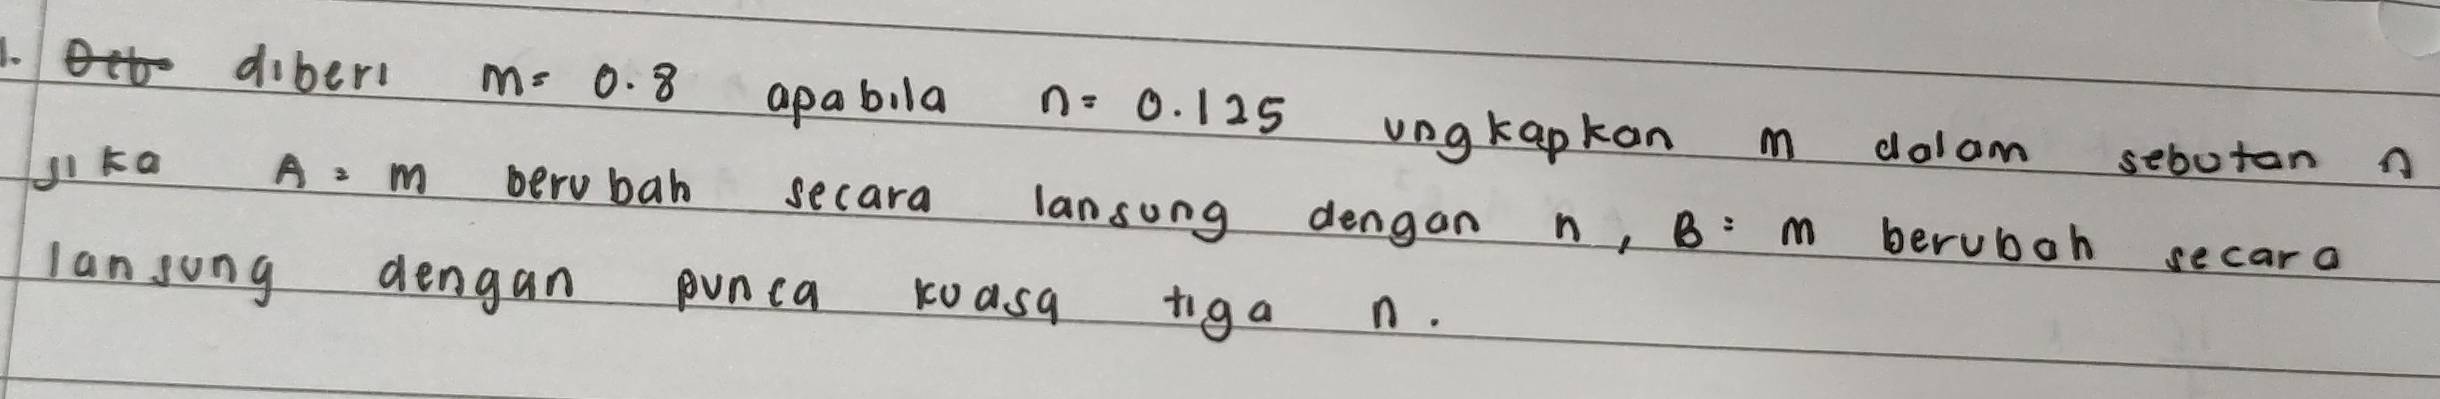 1. diberi m= 0.8 apabila n= 0.125 ungkapkan m dalam sebutan n
jika A= m berubah secara lansung dengan n, B= m berubah secara
lansung dengan punca kuasa tiga n.